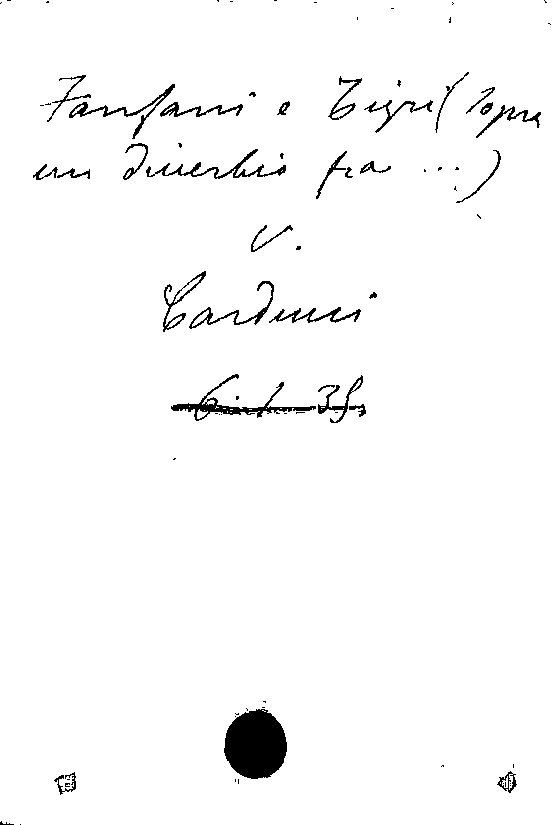 Fanfani e Tigri (sopra
un diverbio fra ...)
V.
Carducci